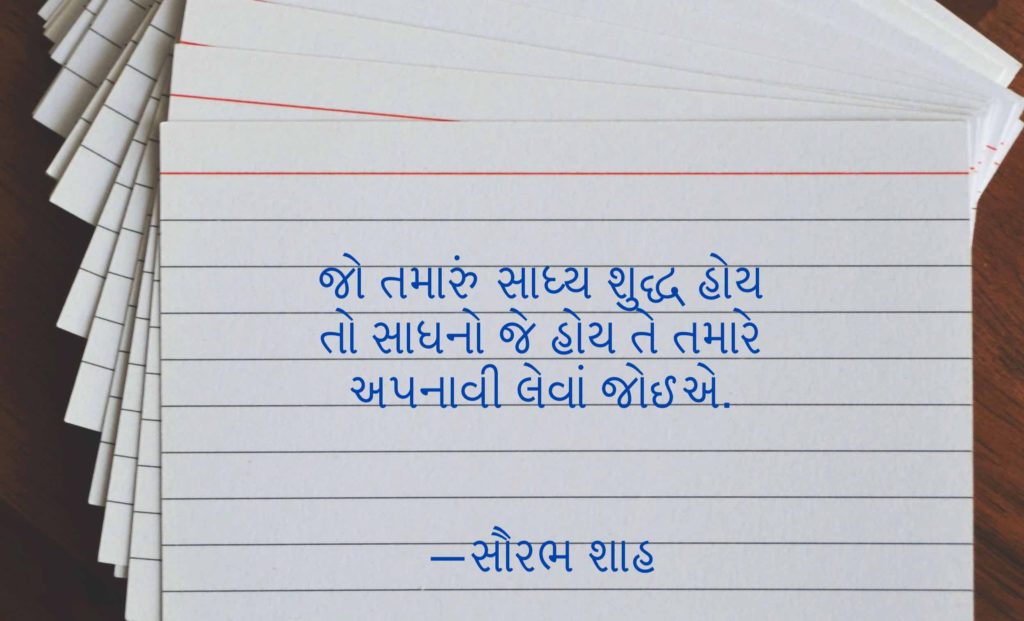 જો તમારું સાધ્ય શુદ્ધ હોય
તો સાધનો જે હોય તે તમારે
અપનાવી લેવાં જોઈએ.
—સૌરભ શાહ